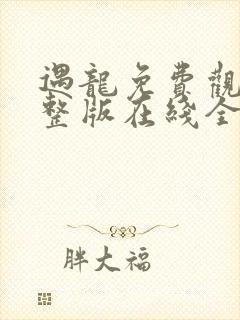 遇龍免費觀
整版在綫全
胖大福